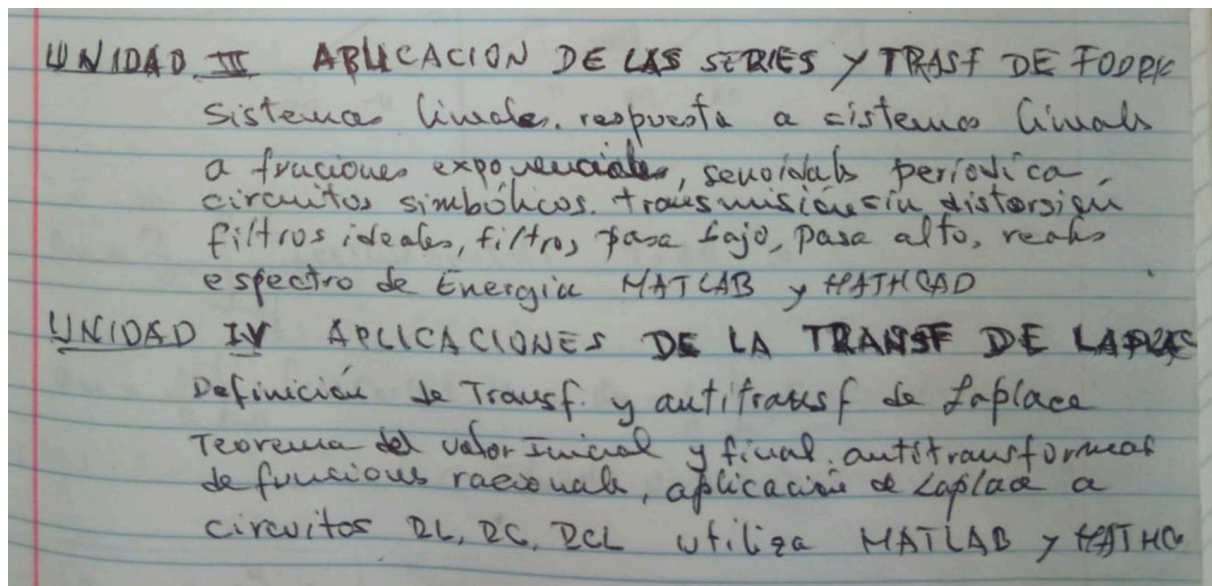 UNIDAD III APLICACION DE LAS SERIES Y TRASF DE FOORIE
Sistemas lineales. respuesta a sistemas lineals
a funciones exponenciales, senoidals periodica.
circuitos simbólicos. transmisión sin distorsión
filtros ideales, filtros pasa bajo, pasa alto, reales
espectro de Energia MATLAB y MATHCAD
UNIDAD IV APLICACIONES DE LA TRANSF DE LAPLAC
Definición de Transf. y antitransf de Laplace
Teorema del valor Inicial y final. antitransformas
de funcions racionals, aplicación de Laplace a
circuitos RL, RC, RCL utiliza MATLAB y MATHC